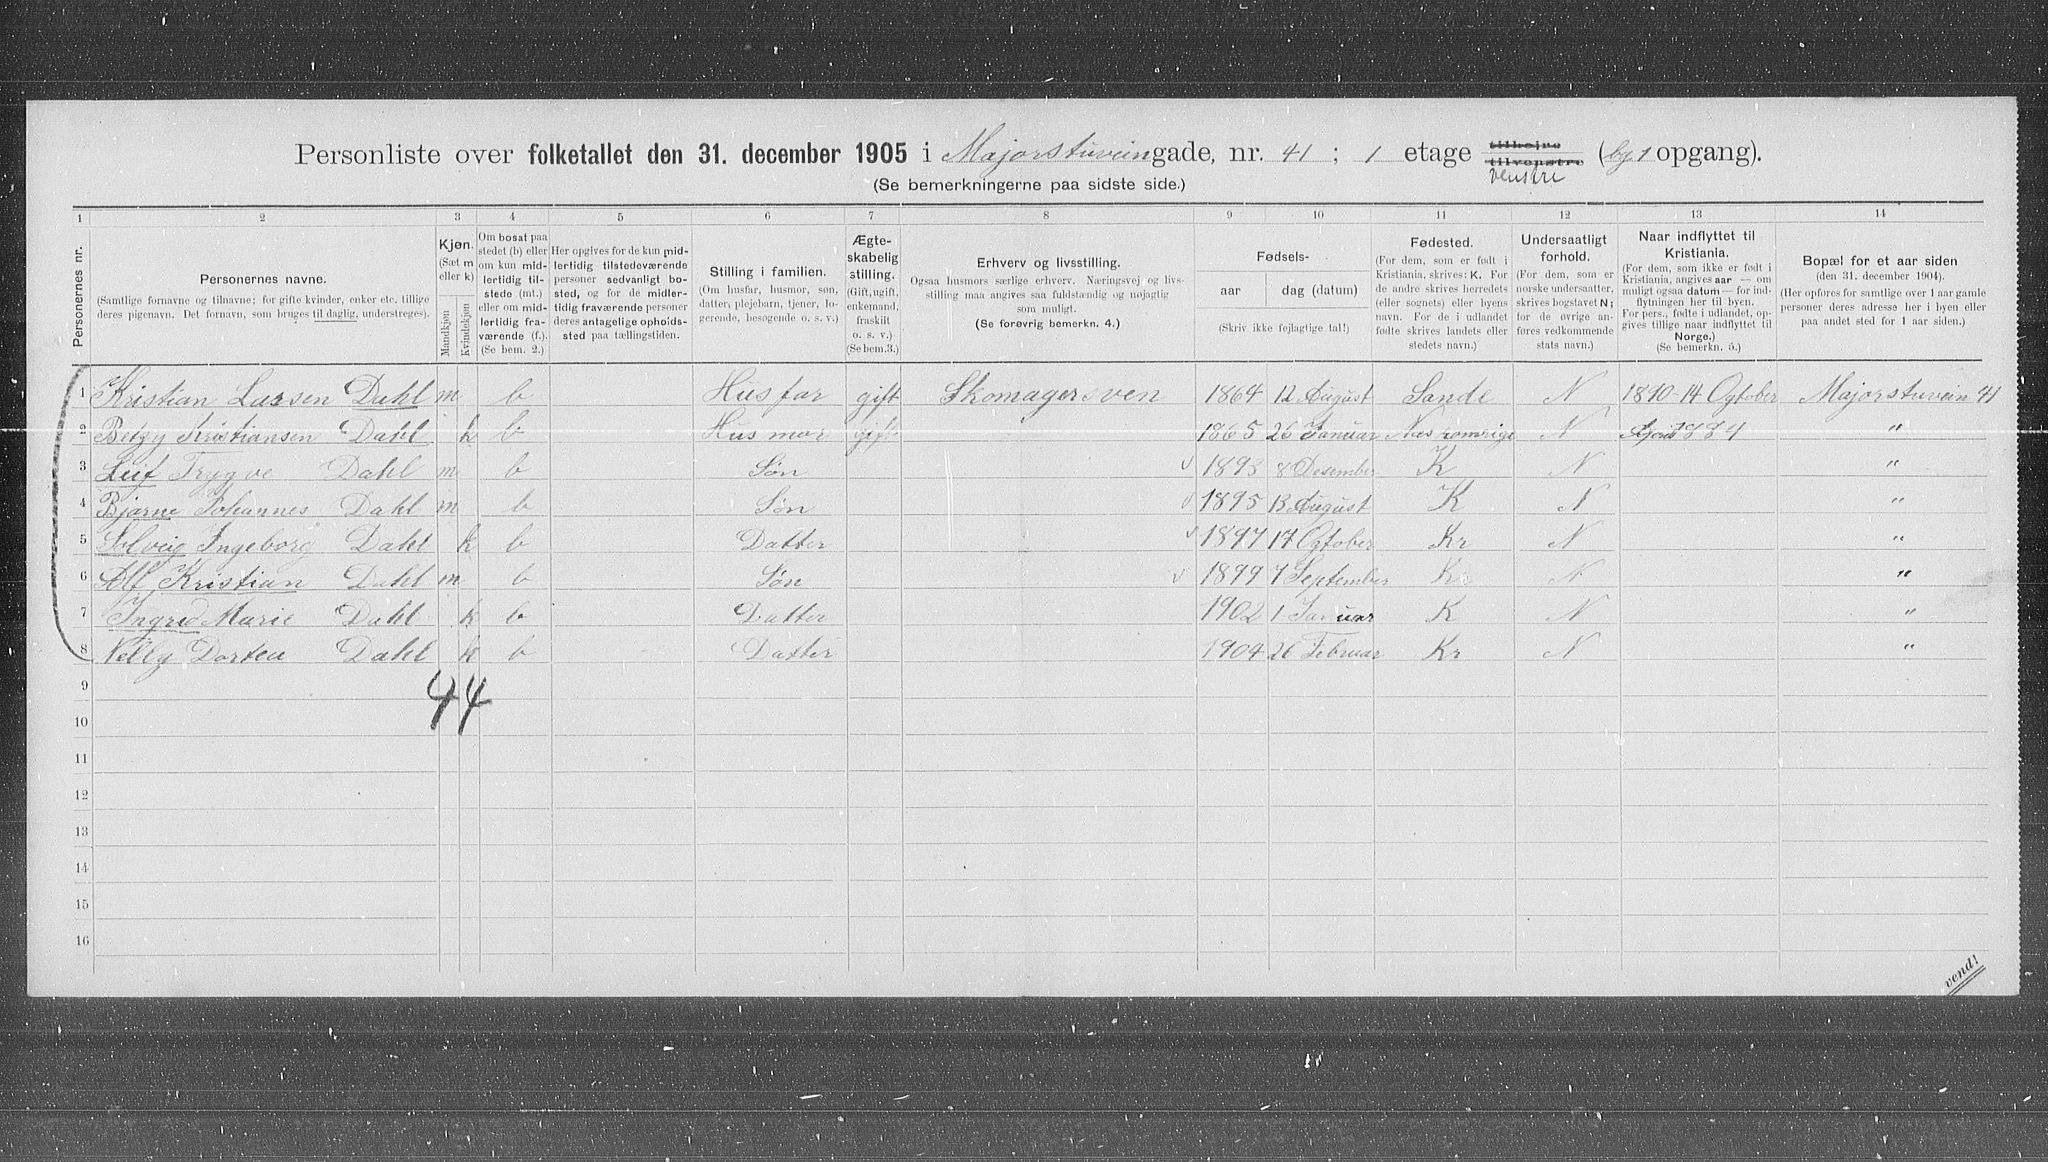 Personliste over folketallet den 31. december 1905 i Majorstuveingade, nr. 41 ; 1 etage tilhøjre tilvenstre venstre (by 1 opgang).
(Se bemerkningerne paa sidste side.)
1 2 3 4 5 6 7 8 9 10 11 12 13 14
Personernes nr.
Personernes navne.
(Samtlige fornavne og tilnavne; for gifte kvinder, enker etc. tillige deres pigenavn. Det fornavn, som bruges til daglig, understreges).
Kjøn.
(Sæt m eller k)
Mandkjøn
Kvindekjøn
Om bosat paa stedet (b) eller om kun midlertidig tilstede (mt.) eller om midlertidig fraværende (f.). (Se bem. 2.)
Her opgives for de kun midlertidig tilstedeværende personer sedvanligt bosted, og for de midlertidig fraværende personer deres antagelige opholdssted paa tællingstiden.
Stilling i familien.
(Om husfar, husmor, søn, datter, plejebarn, tjener, logerende, besøgende o. s. v.)
Ægteskabelig stilling.
(Gift, ugift, enkemand, fraskilt o. s. v.)
(Se bem.3.)
Erhverv og livsstilling.
Ogsaa husmors særlige erhverv. Næringsvej og livsstilling maa angives saa fuldstændig og nøjagtig som muligt.
(Se forøvrig bemerkn. 4.)
Fødsels-
aar dag (datum)
(Skriv ikke fejlagtige tal!)
Fødested.
(For dem, som er født i Kristiania, skrives: K. For de andre skrives herredets (eller sognets) eller byens navn. For de i udlandet fødte skrives landets eller stedets navn.)
Undersaatligt forhold.
(For dem, som er norske undersaatter, skrives bogstavet N; for de øvrige anføres vedkommende stats navn.)
Naar indflyttet til Kristiania.
(For dem, som ikke er født i Kristiania, angives aar — om muligt ogsaa datum — for indflytningen her til byen. For pers., fødte i udlandet, opgives tillige naar indflyttet til Norge.)
(Se bemerkn. 5.)
Bopæl for et aar siden
(den 31. december 1904).
(Her opføres for samtlige over 1 aar gamle personer deres adresse her i byen eller paa andet sted for 1 aar siden.)
1 Kristian Larsen Dahl m b Husfar gift Skomagersven 1864 12 August Sande N 1890-14 Ogtober Majorstuvein 41
2 Betzy Kristiansen Dahl k b Husmor gift 1865 26 Januar Næs romrige N 1884 "
3 Leif Trygve Dahl m b Søn 1893 8 Desember K N "
4 Bjarne Johannes Dahl m b Søn 1895 13 August K N "
5 Solveig Ingeborg Dahl k b Datter 1897 17 Ogtober Kr N "
6 Alf Kristian Dahl m b Søn 1899 7 September Kr N "
7 Ingrid Marie Dahl k b Datter 1902 1 Januar K N "
8 Nelly Dorten Dahl k b Datter 1904 26 Februar Kr N "
9
44
10
11
12
13
14
15
16
vend!